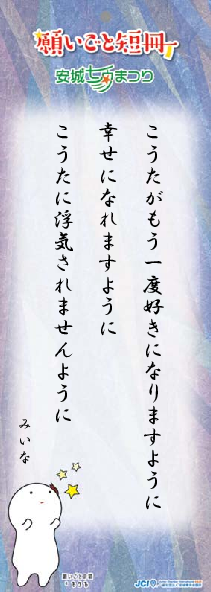 願いごと短冊
安城七夕まつり
こうたがもう一度好きになりますように
幸せになれますように
こうたに浮気されませんように
みいな
願いごと短冊
JCI